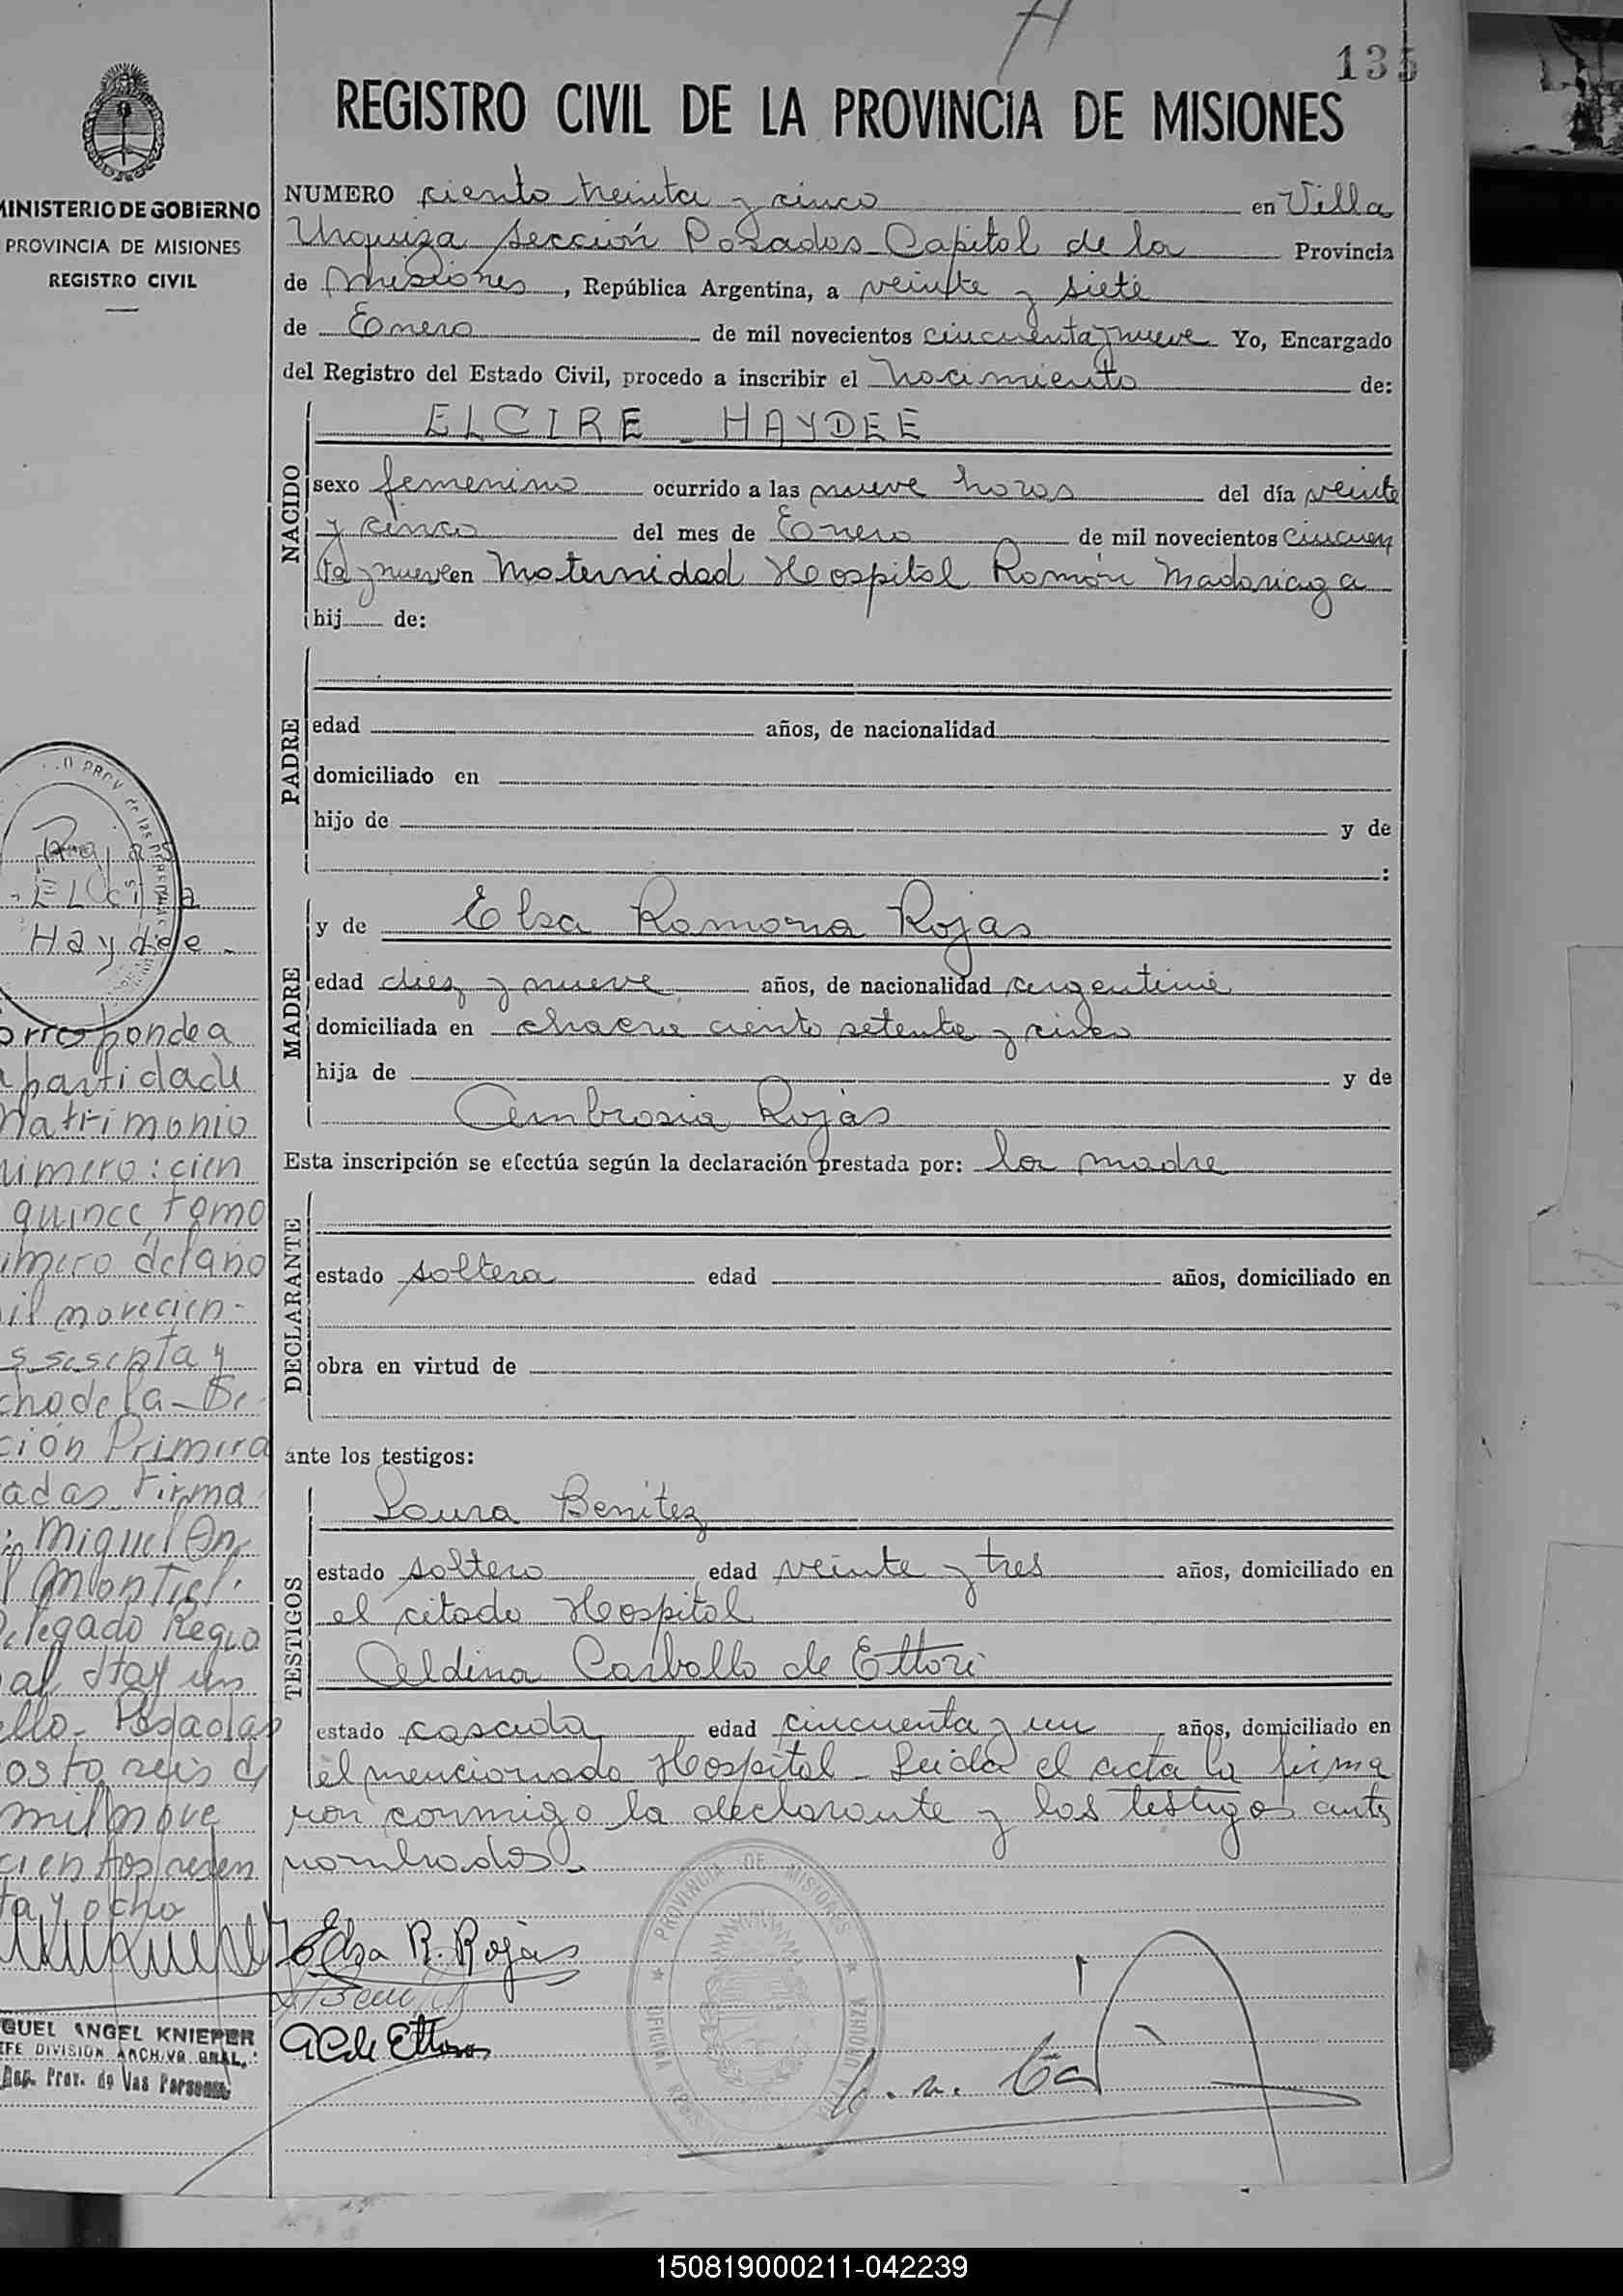 135
REGISTRO CIVIL DE LA PROVINCIA DE MISIONES
MINISTERIO DE GOBIERNO
PROVINCIA DE MISIONES
REGISTRO CIVIL
NUMERO ciento treinta y cinco en Villa
Urquiza Sección Posadas Capital de la Provincia
de Misiones, República Argentina, a veinte y siete
de Enero de mil novecientos cincuenta y nueve Yo, Encargado
del Registro del Estado Civil, procedo a inscribir el nacimiento de:
NACIDO
ELCIRE HAYDEE
sexo femenino ocurrido a las nueve horas del día veinte
y cinco del mes de Enero de mil novecientos cincuen
ta y nueve en Maternidad Hospital Ramón Madariaga
hij de:
PADRE
edad años, de nacionalidad
domiciliado en
hijo de y de
:
MADRE
y de Elsa Ramona Rojas
edad diez y nueve años, de nacionalidad argentina
domiciliada en chacra ciento setenta y cinco
hija de y de
Ambrosia Rojas
Esta inscripción se efectúa según la declaración prestada por: la madre
DECLARANTE
estado soltera edad años, domiciliado en
obra en virtud de
ante los testigos:
TESTIGOS
Laura Benitez
estado soltera edad veinte y tres años, domiciliado en
el citado Hospital
Aldina Carballo de Ettori
estado casada edad cincuenta y un años, domiciliado en
el mencionado Hospital - Leida el acta la firma
ron conmigo la declarante y los testigos antes
nombrados.-
Elsa R. Rojas
A C de Ettori
PROVINCIA DE MISIONES
Haydee -
orresponde a
a partida de
Matrimonio
úmero: cien
quince, tomo
imero del año
il novecien-
s sesenta y
cho de la - Se
ción Primera
adas. Firma
: Miguel An
l Montiel.
Delegado Regio
al Hay un
ello. Posadas
osto seis d
mil nove
cientos sesen
ta y ocho
GUEL ANGEL KNIEPER
EFE DIVISION ARCHIVO GRAL.
Rep. Prov. de las Personas
150819000211-042239